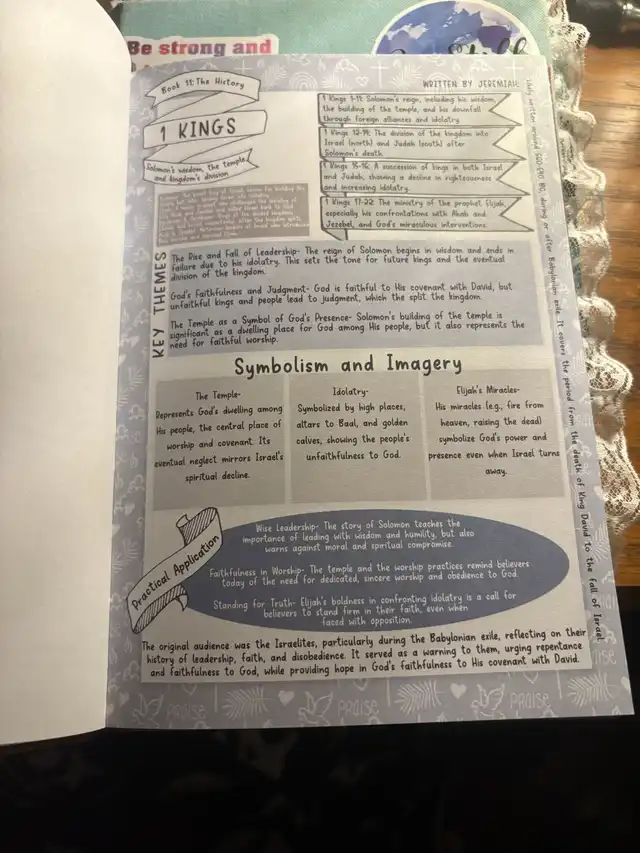 Be strong and
Book 11: The History
1 KINGS
Solomon's wisdom, the temple
and kingdom's division
WRITTEN BY JEREMIAH
1 Kings 1-11: Solomon's reign, including his wisdom,
the building of the temple, and his downfall
through foreign alliances and idolatry.
1 Kings 12-14: The division of the kingdom into
Israel (north) and Judah (south) after
Solomon's death.
1 Kings 15-16: A succession of kings in both Israel
and Judah, showing a decline in righteousness
and increasing idolatry.
1 Kings 17-22: The ministry of the prophet Elijah,
especially his confrontations with Ahab and
Jezebel, and God's miraculous interventions.
KEY THEMES
The Rise and Fall of Leadership- The reign of Solomon begins in wisdom and ends in
failure due to his idolatry. This sets the tone for future kings and the eventual
division of the kingdom.
God's Faithfulness and Judgment- God is faithful to His covenant with David, but
unfaithful kings and people lead to judgment, which the split the kingdom.
The Temple as a Symbol of God's Presence- Solomon's building of the temple is
significant as a dwelling place for God among His people, but it also represents the
need for faithful worship.
Symbolism and Imagery
The Temple-
Represents God's dwelling among
His people, the central place of
worship and covenant. Its
eventual neglect mirrors Israel's
spiritual decline.
Idolatry-
Symbolized by high places,
altars to Baal, and golden
calves, showing the people's
unfaithfulness to God.
Elijah's Miracles-
His miracles (e.g., fire from
heaven, raising the dead)
symbolize God's power and
presence even when Israel turns
away.
Practical Application
Wise Leadership- The story of Solomon teaches the
importance of leading with wisdom and humility, but also
warns against moral and spiritual compromise.
Faithfulness in Worship- The temple and the worship practices remind believers
today of the need for dedicated, sincere worship and obedience to God.
Standing for Truth- Elijah's boldness in confronting idolatry is a call for
believers to stand firm in their faith, even when
faced with opposition.
The original audience was the Israelites, particularly during the Babylonian exile, reflecting on their
history of leadership, faith, and disobedience. It served as a warning to them, urging repentance
and faithfulness to God, while providing hope in God's faithfulness to His covenant with David.
written around during or after Babylonian exile. It covers the period from the death of King David to the fall of Israel
PRAISE
PRAISE
PRAISE